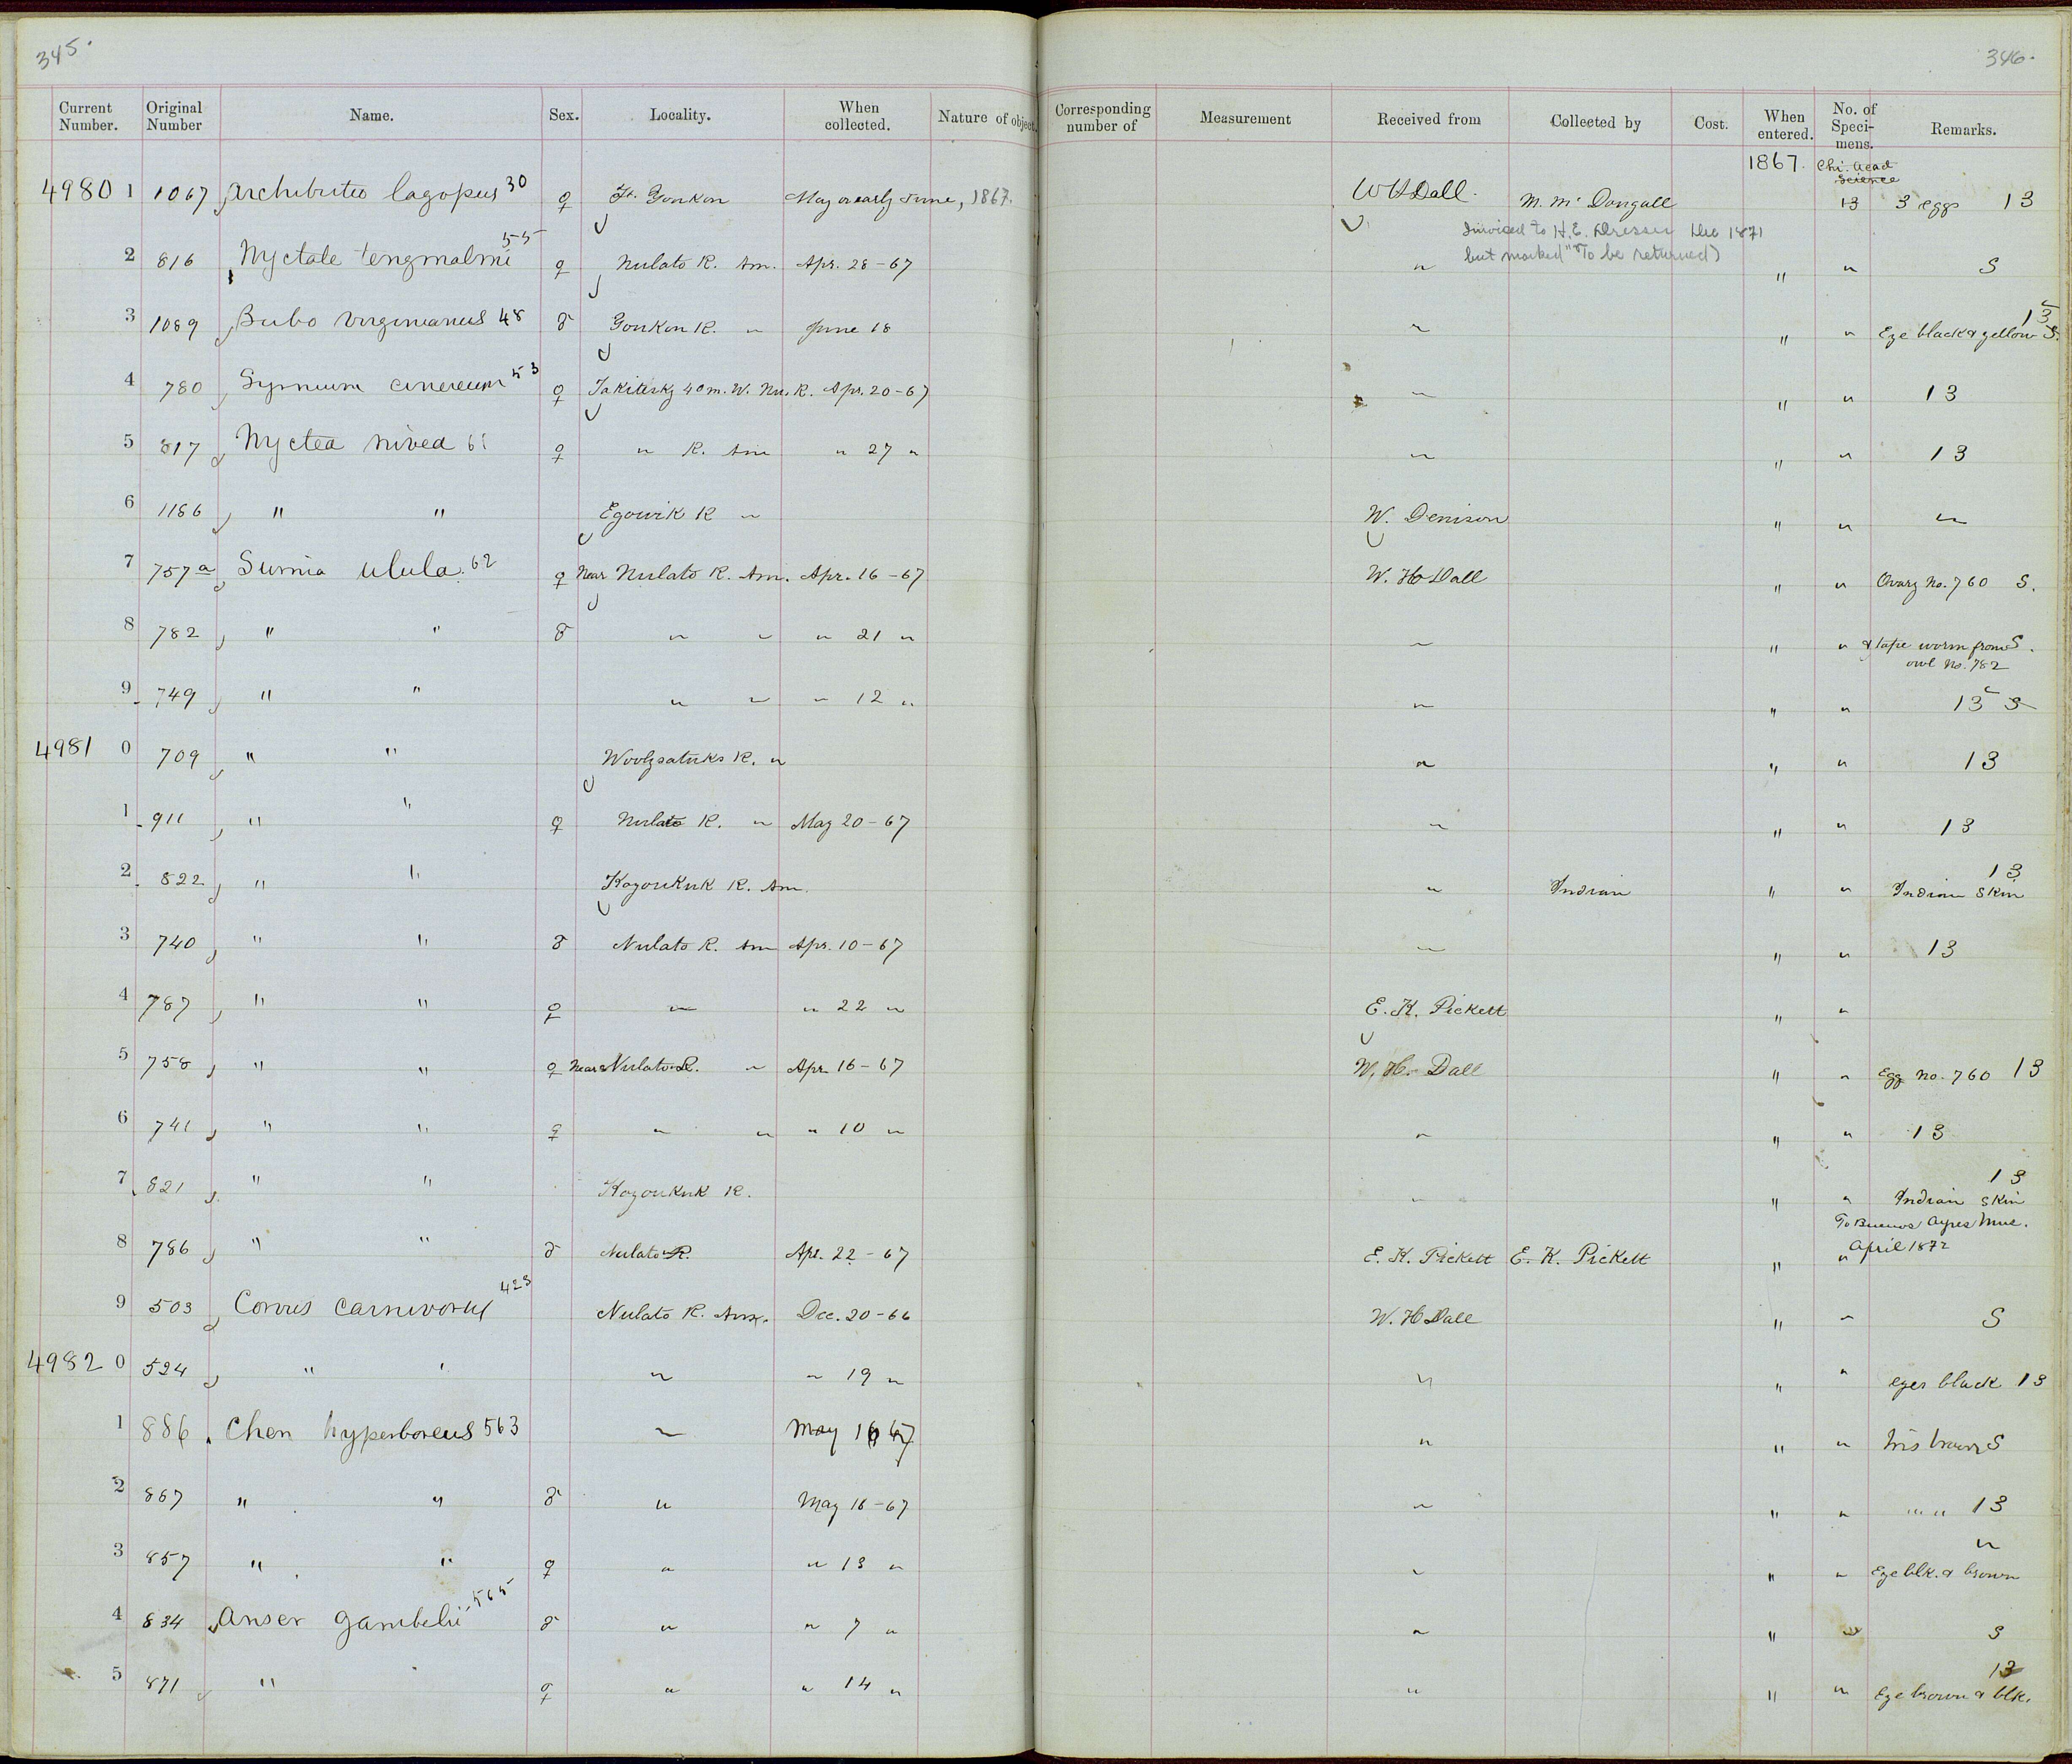 345.
346.
Current Number. Original Number Name. Sex. Locality. When collected. Nature of object. Corresponding number of Measurement Received from Collected by Cost. When entered. No. of Speci-mens. Remarks.
1867. Chi. Acad Science
49801 1067 Archibuteo lagopus 30 ♀ Ft. Youkon May or early June, 1867. W H Dall. M. McDougall 13 3 eggs 13
Invoiced to H. E. Dresser Dec 1871
but marked "To be returned)
2 816 Nyctale tengmalmi 55 ♀ Nulato R. Am. Apr. 28-67 " " " S
3 1089 Bubo virginianus 48 ♂ Youkon R. " June 18 " " " Eye black & yellow S. 13
4 780 Syrnium cinereum 53 ♀ 40 m. W. Nu. R. Apr. 20-67 " " " 13
5 817 Nyctea nivea 61 ♀ " R. Am " 27 " " " " 13
6 1186 " " Egowik R " W. Denison " " "
7 757a Surnia ulula. 62 ♀ Near Nulato R. Am. Apr. 16-67 W. H Dall " " Ovary No. 760 S.
8 782 " " ♂ " " " 21 " " " " & tape worm from S.
owl No. 782
9 749 " " " " " 12 " " " " 13 S
49810 709 " " R. " " " " 13
1 911 " " ♀ Nulato R. " May 20-67 " " " 13
2 822 " " Koyoukuk R. Am. " Indian " " Indian Skin 13
3 740 " " ♂ Nulato R. Am Apr. 10-67 " " " 13
4 787 " " ♀ " " 22 " E. K. Pickett " "
5 758 " " ♀ Near Nulato R. " Apr. 16-67 W. H. Dall " " Egg No. 760 13
6 741 " " ♀ " " " 10 " " " " 13
7 821 " " Koyoukuk R. " " " Indian Skin 13
To Buenos Ayres Mus.
April 1872
8 786 " " ♂ Nulato R. Apr. 22-67 E. K. Pickett E. K. Pickett " "
9 503 Corvus carnivorus 423 Nulato R. Am. Dec. 20-66 W. H Dall " " S
49820 524 " " " " 19 " " " " eyes black 13
1 886 Chen hyperboreus 563 " May 16 67 " " " Iris brown S
2 867 " " ♂ " May 16-67 " " " " " 13
3 857 " " ♀ " " 13 " " " " " Eye blk. & brown
4 834 Anser gambelii 565 ♂ " " 7 " " " " S
5 871 " ♀ " " 14 " " " " 13 Eye brown & blk.